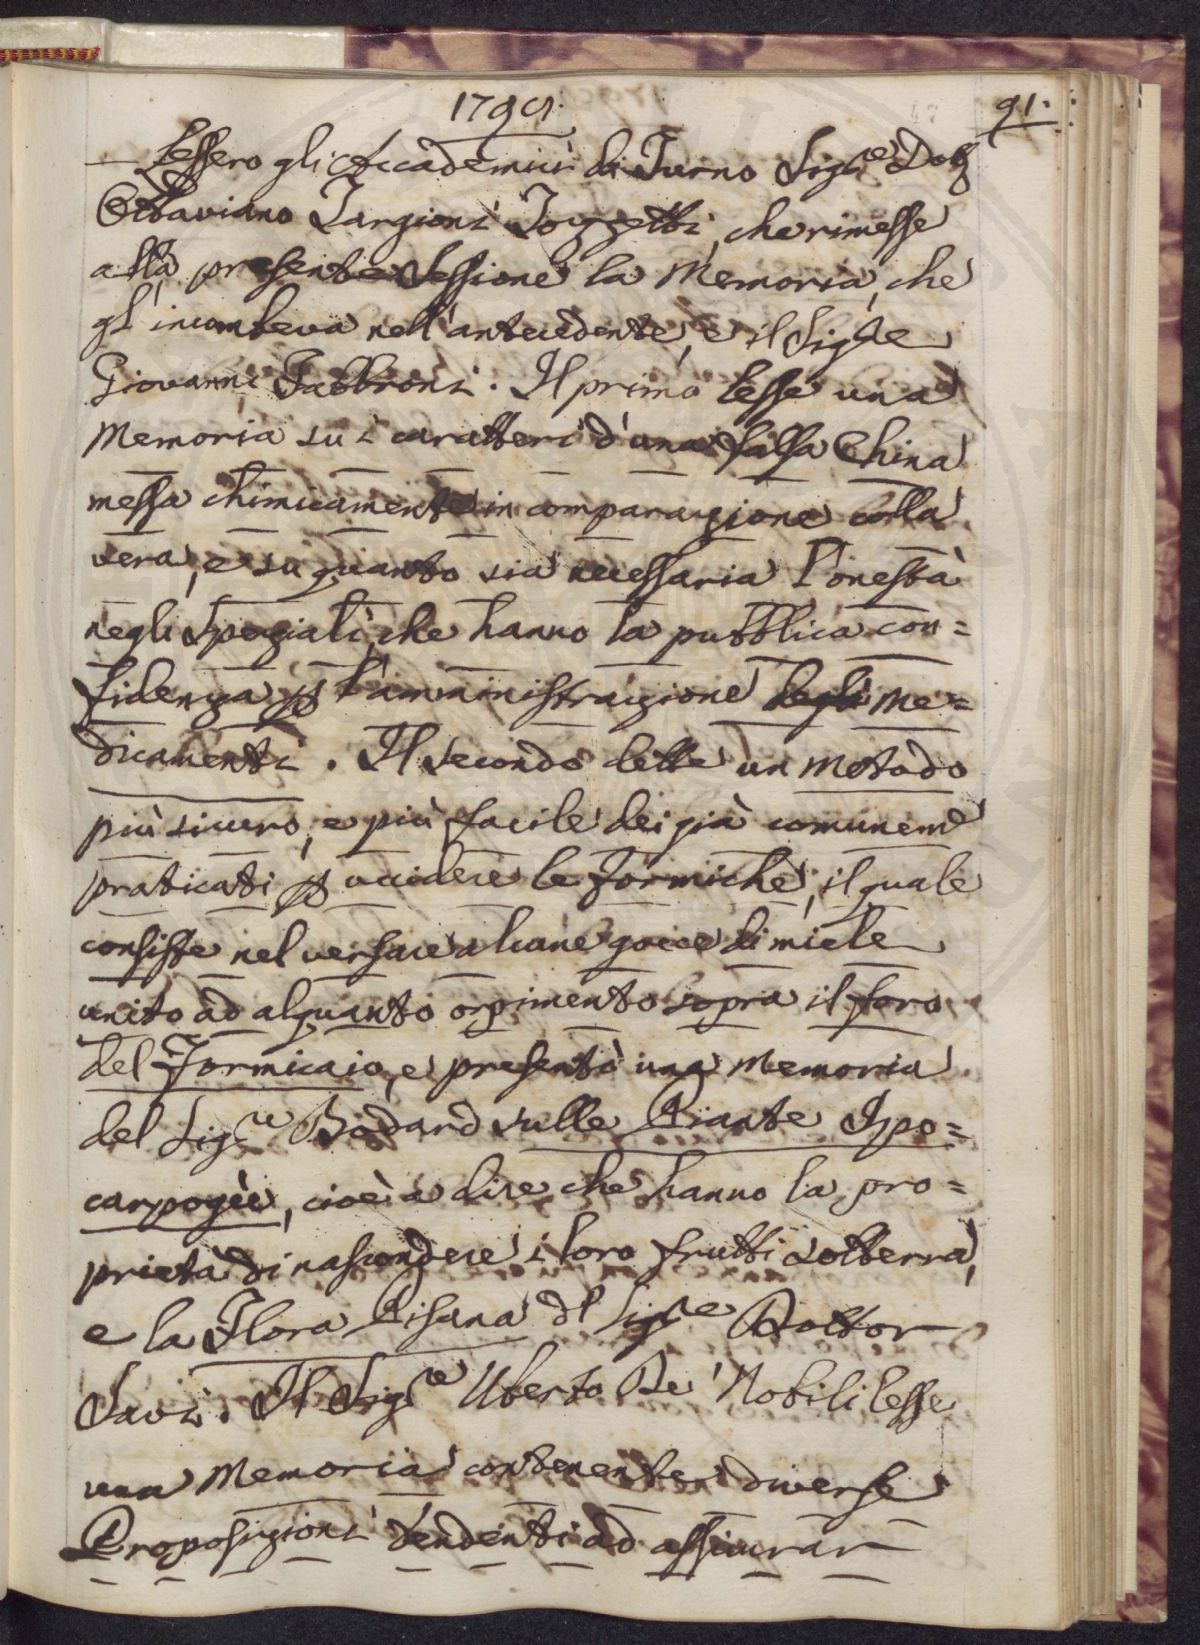 1799.
91.
— Lessero gli Accademici di Turno Sigre Dotr
Ottaviano Targioni Tozzetti, che rimesse
alla presente Sessione la Memoria, che
gl'incombeva nell'antecedente, e il Sigre
Giovanni Fabbroni. Il primo lesse una
Memoria su i caratteri d'una falsa China
messa chimicamente in comparazione colla
vera, e su quanto sia necessaria l'onestà
negli Speziali, che hanno la pubblica con=
fidenza p l'amministrazione degli Me=
dicamenti. Il Secondo lette un Metodo
più sicuro, e più facile dei già comuneme
praticati p uccidere le Formiche, il quale
consiste nel versare alcune gocce di miele
unito ad alquanto orpimento sopra il foro
del Formicaio, e presentò una Memoria
del Sigre Bodard sulle Piante Ipo=
carpogèe, cioè a dire che hanno la pro=
prietà di nascondere i loro frutti sotterra,
e la Flora Pisana dl Sigre Dottor
Savi. Il Sigre Uberto De' Nobili lesse
una Memoria contenente diverse
Proposizioni tendenti ad assicurar